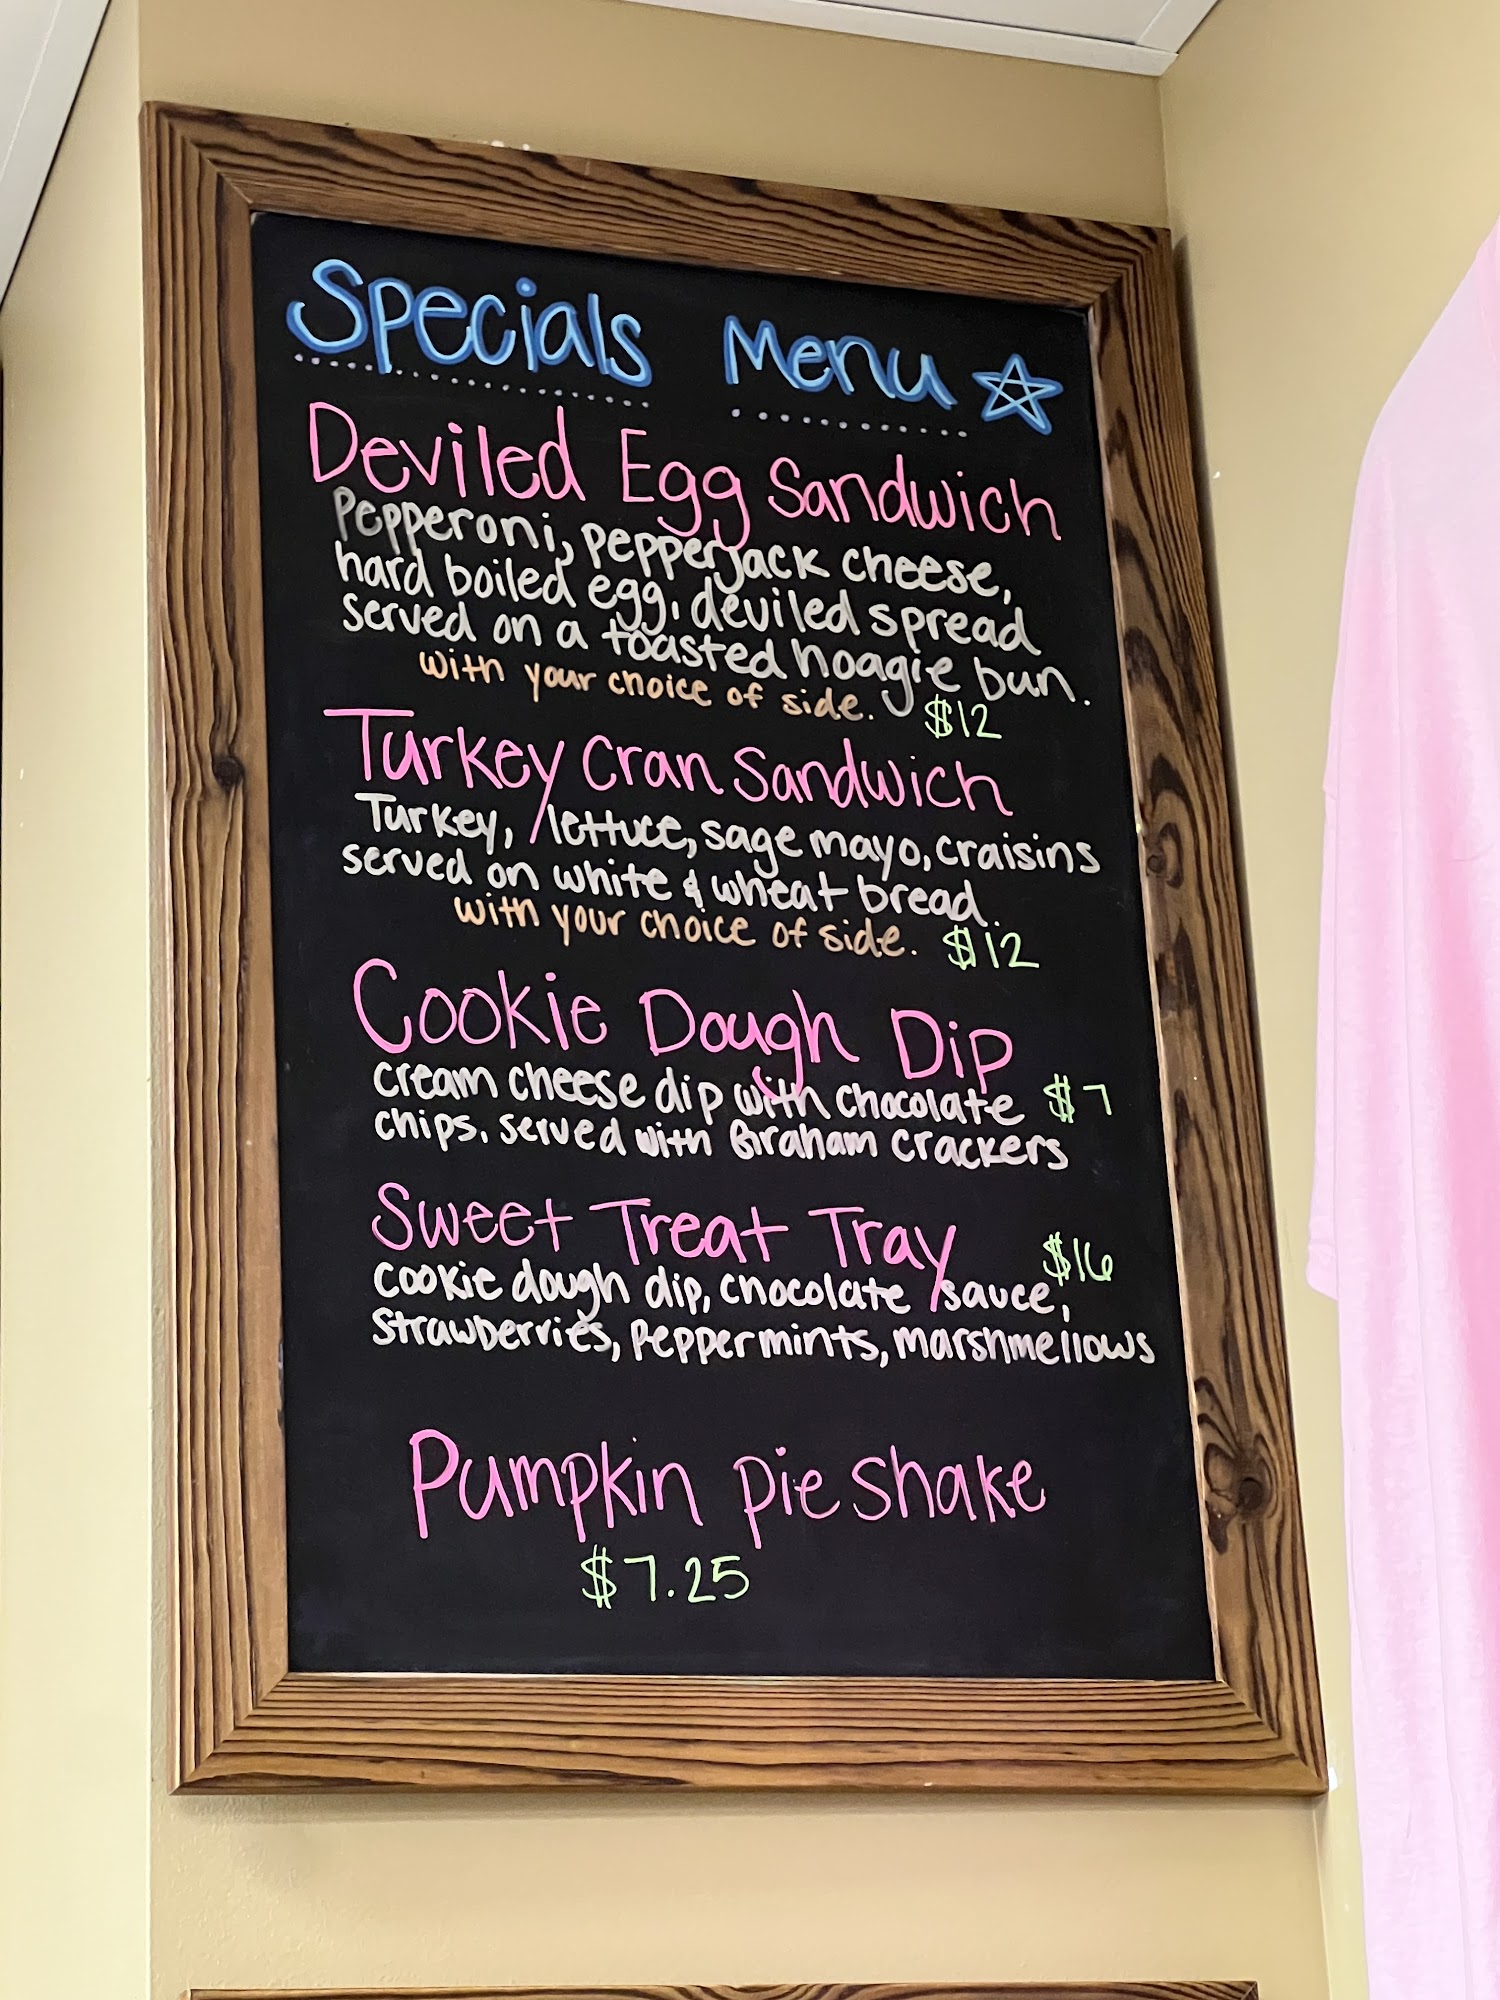 Specials Menu
Deviled Egg Sandwich
Pepperoni, pepperjack cheese,
hard boiled egg, deviled spread
served on a toasted hoagie bun.
with your choice of side. $12
Turkey Cran Sandwich
Turkey, lettuce, sage mayo, craisins
served on white & wheat bread.
with your choice of side. $12
Cookie Dough Dip
cream cheese dip with chocolate $7
chips. served with Graham crackers
Sweet Treat Tray $16
cookie dough dip, chocolate sauce,
strawberries, peppermints, marshmellows
Pumpkin pie shake
$7.25